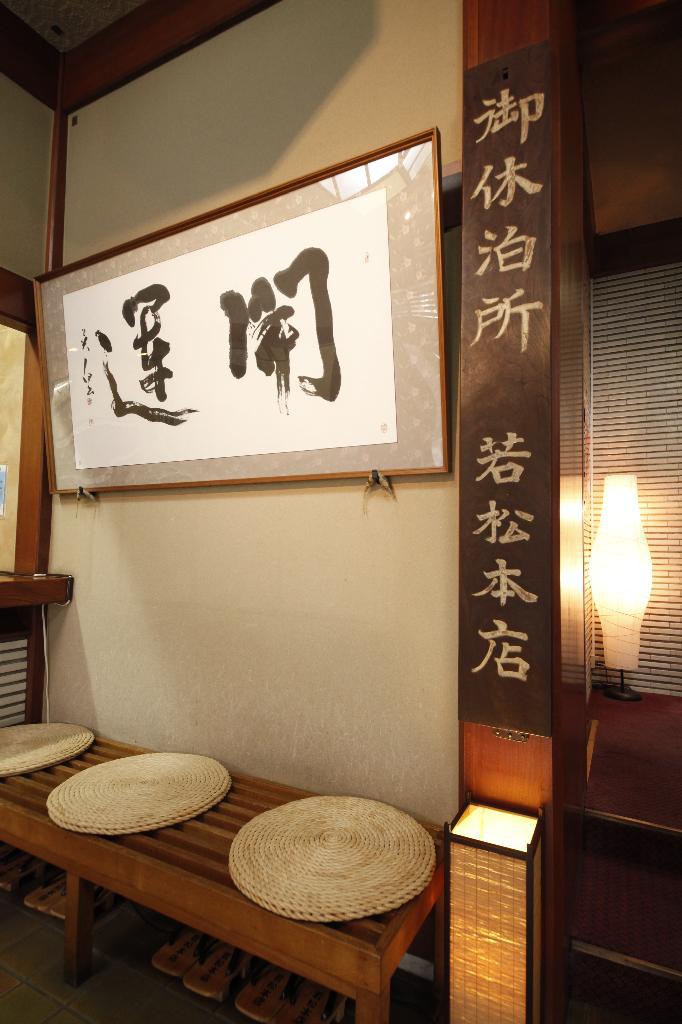 御休泊所 若松本店
開運